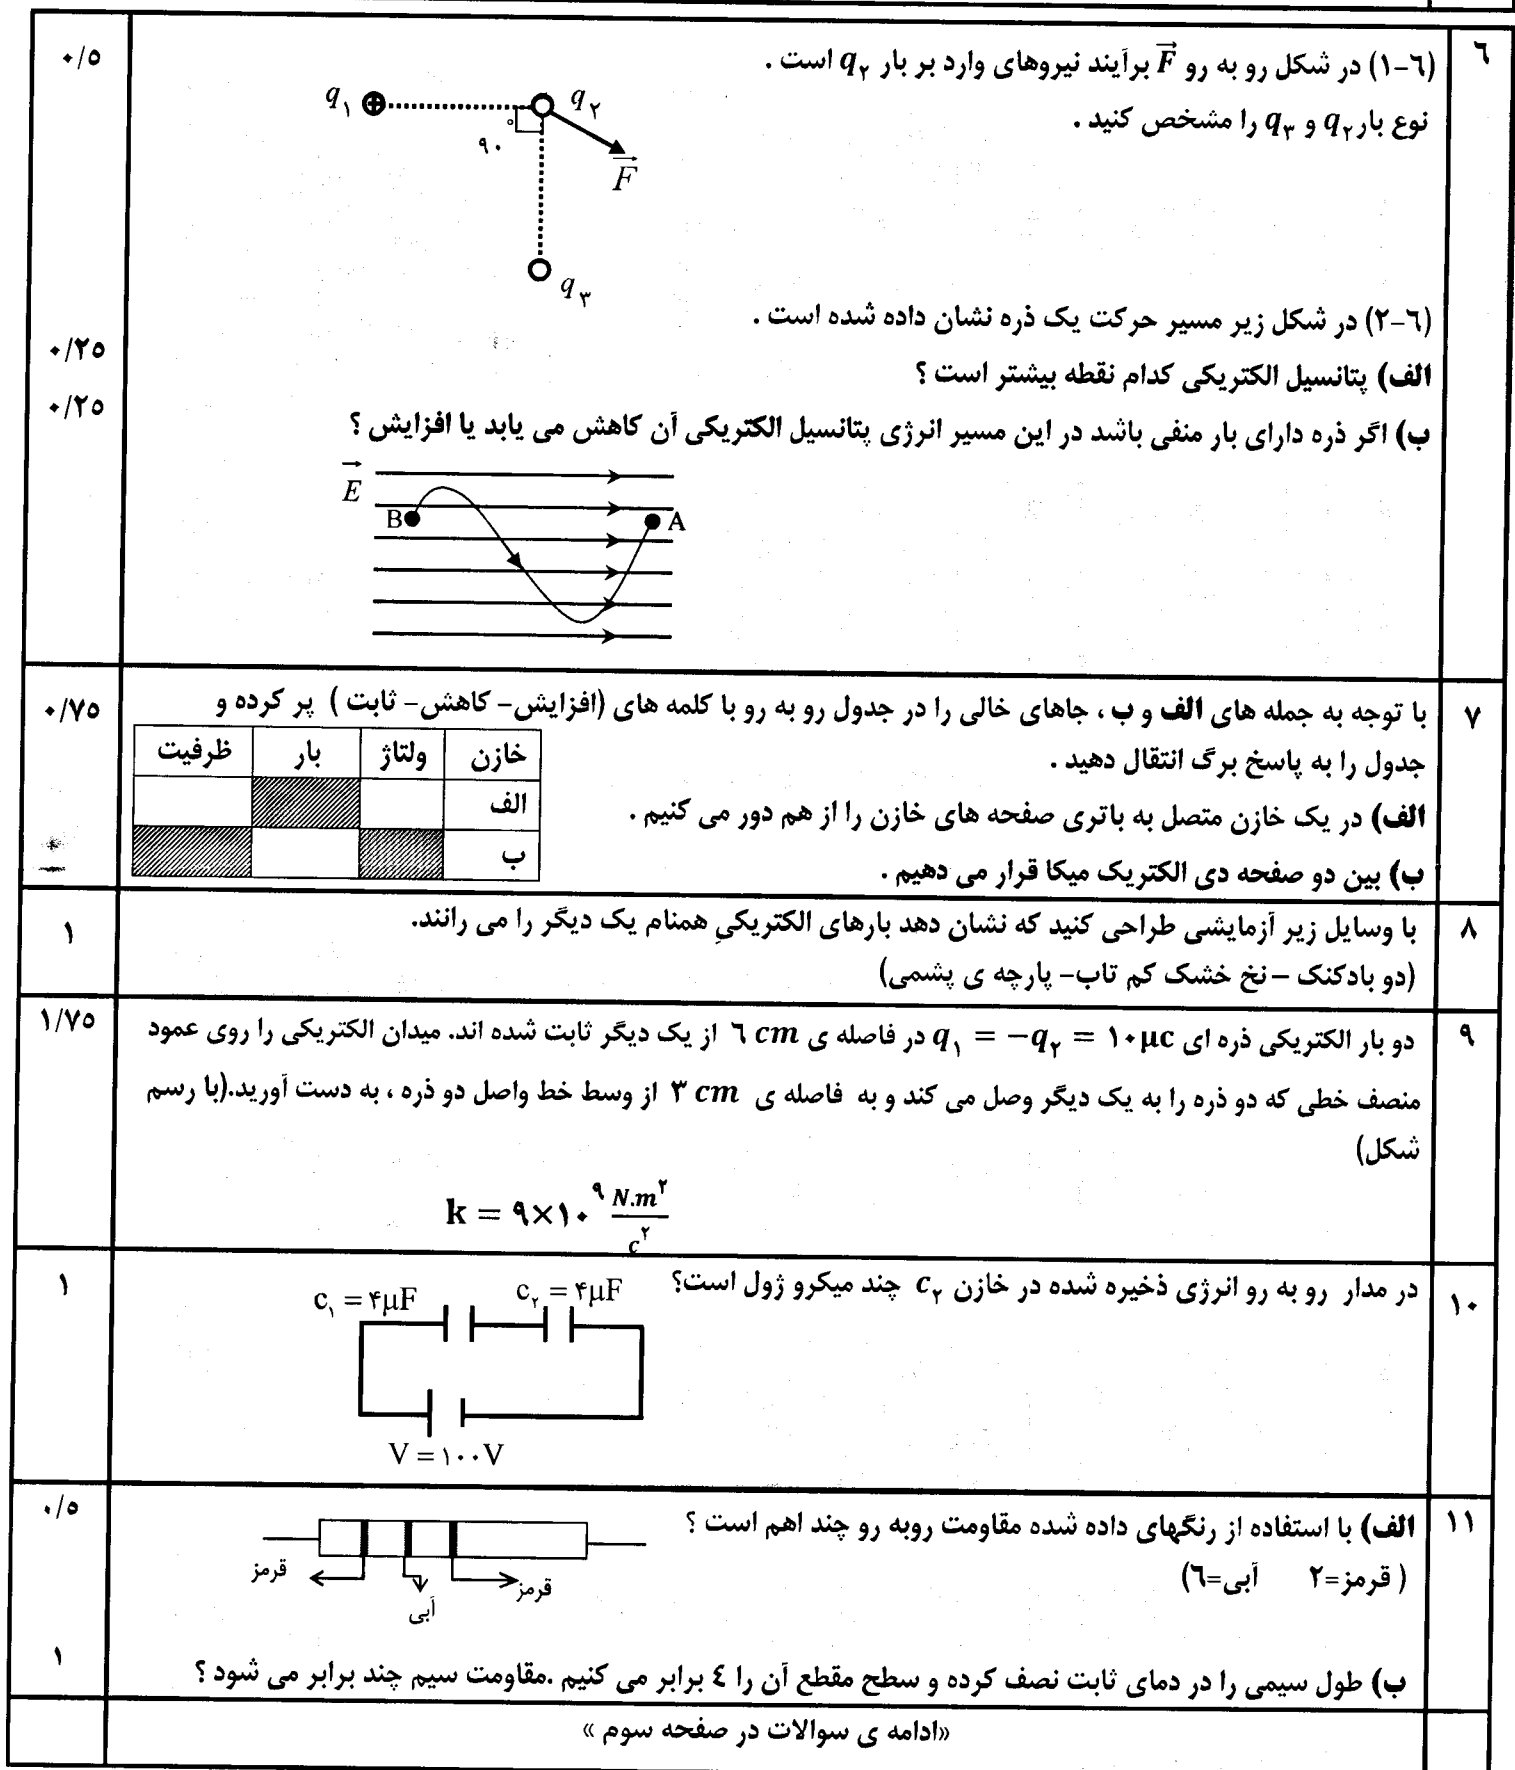 ۶
(۶-۱) در شکل رو به رو F برآیند نیروهای وارد بر بار q۲ است .
۰/۵
نوع بار q۲ و q۳ را مشخص کنید .
q۱ q۲
۹۰
F
q۳
(۶-۲) در شکل زیر مسیر حرکت یک ذره نشان داده شده است .
الف) پتانسیل الکتریکی کدام نقطه بیشتر است ؟
۰/۲۵
ب) اگر ذره دارای بار منفی باشد در این مسیر انرژی پتانسیل الکتریکی آن کاهش می یابد یا افزایش ؟
۰/۲۵
E
B A
۷
با توجه به جمله های الف و ب ، جاهای خالی را در جدول رو به رو با کلمه های (افزایش- کاهش- ثابت ) پر کرده و
۰/۷۵
جدول را به پاسخ برگ انتقال دهید .
الف) در یک خازن متصل به باتری صفحه های خازن را از هم دور می کنیم .
ب) بین دو صفحه دی الکتریک میکا قرار می دهیم .
خازن ولتاژ بار ظرفیت
الف
ب
۸
با وسایل زیر آزمایشی طراحی کنید که نشان دهد بارهای الکتریکیِ همنام یک دیگر را می رانند.
۱
(دو بادکنک – نخ خشک کم تاب- پارچه ی پشمی)
۹
دو بار الکتریکی ذره ای q۱ = −q۲ = ۱۰μc در فاصله ی ۶ cm از یک دیگر ثابت شده اند. میدان الکتریکی را روی عمود
۱/۷۵
منصف خطی که دو ذره را به یک دیگر وصل می کند و به فاصله ی ۳ cm از وسط خط واصل دو ذره ، به دست آورید.(با رسم
شکل)
k = ۹×۱۰^۹ N.m^۲/c^۲
۱۰
در مدار رو به رو انرژی ذخیره شده در خازن c۲ چند میکرو ژول است؟
۱
c۱ = ۴μF c۲ = ۴μF
V = ۱۰۰V
۱۱
الف) با استفاده از رنگهای داده شده مقاومت روبه رو چند اهم است ؟
۰/۵
( قرمز=۲ آبی=۶)
قرمز
آبی
قرمز
ب) طول سیمی را در دمای ثابت نصف کرده و سطح مقطع آن را ٤ برابر می کنیم .مقاومت سیم چند برابر می شود ؟
۱
«ادامه ی سوالات در صفحه سوم »